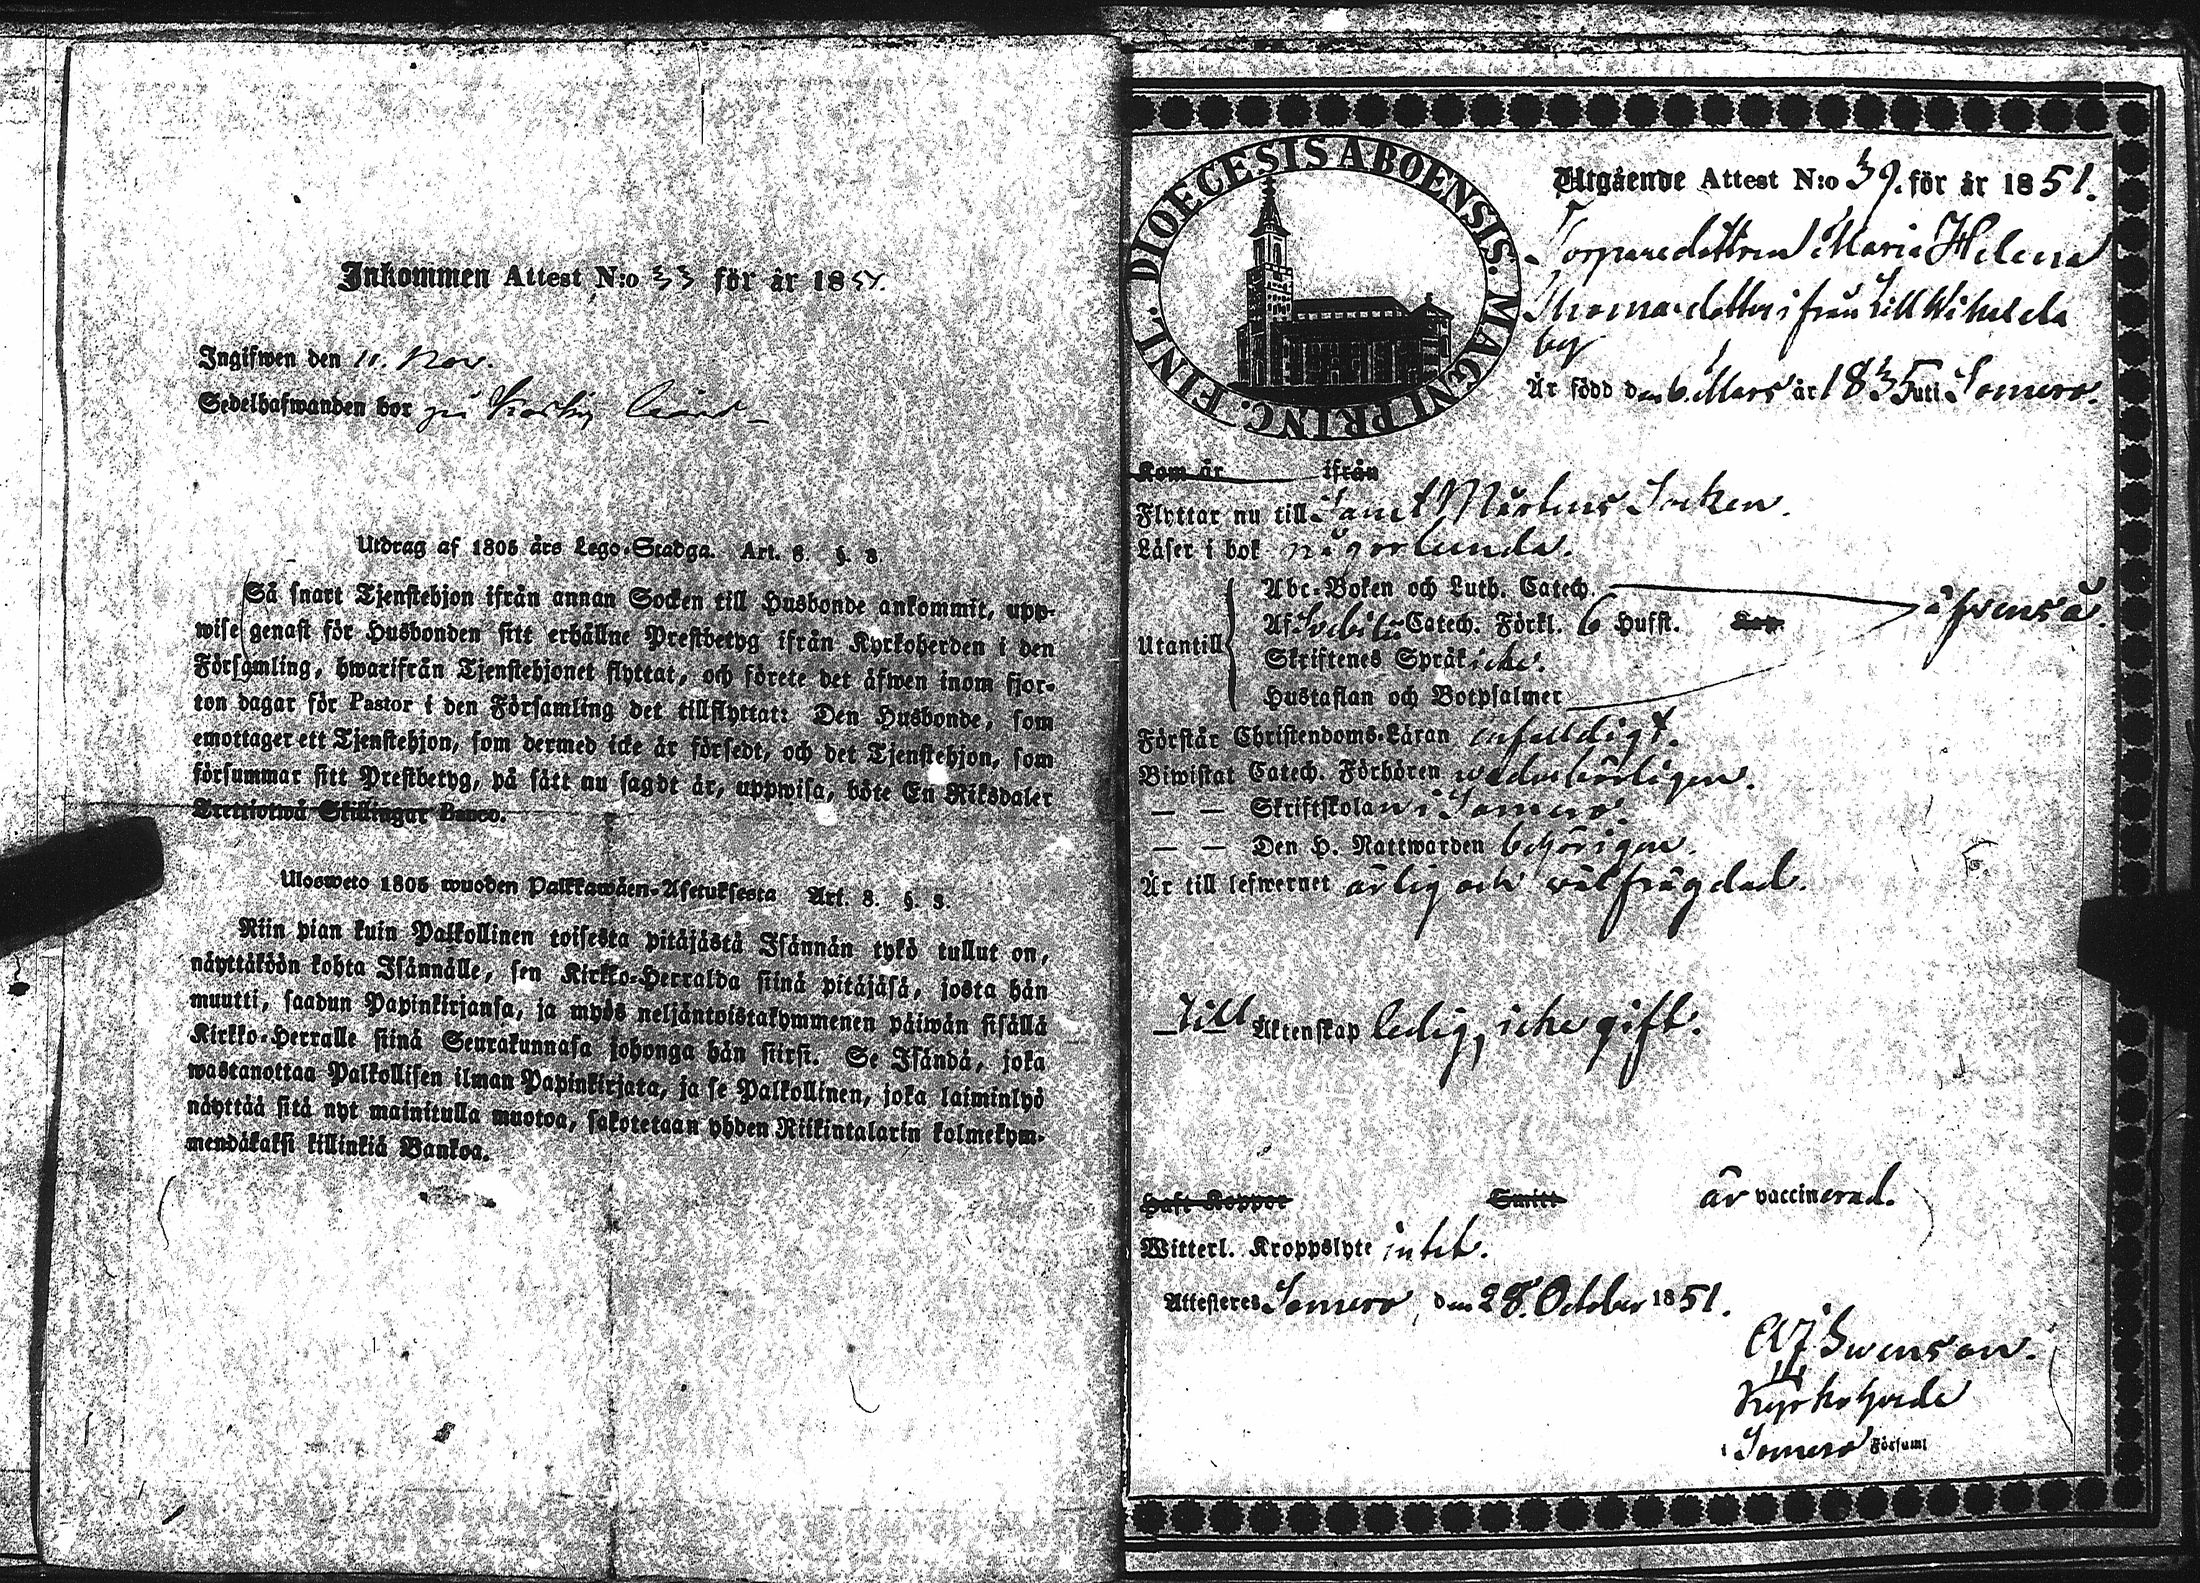 Inkommen Attest N:o 33 för år 1851.
Ingifwen den 11. Nov.
Sedelhafwanden bor på
Utdrag af 1805 års Lego-Stadga. Art. 8. §. 3.
Så snart Tjenstehjon ifrån annan Socken till Husbonde ankommit, upp-
wise genast för Husbonden sitt erhållne Prestbetyg ifrån Kyrkoherden i den
Församling, hwarifrån Tjenstehjonet flyttat, och förete det äfwen inom fjor-
ton dagar för Pastor i den Församling det tillflyttat: Den Husbonde, som
emottager ett Tjenstehjon, som dermed icke är försedt, och det Tjenstehjon, som
försummar sitt Prestbetyg, på sätt nu sagdt är, uppwisa, böte En Riksdaler
Trettiotwå Skillingar Banco.
Ulosweto 1805 wuoden Palkkawäen-Asetuksesta Art. 8. §. 3.
Niin pian kuin Palkollinen toisesta pitäjästä Isännän tykö tullut on,
näyttäköön kohta Isännälle, sen Kirkko-Herralda siinä pitäjäsä, josta hän
muutti, saadun Papinkirjansa, ja myös neljäntoistakymmenen päiwän sisällä
Kirkko-Herralle siinä Seurakunnasa johonga hän siirsi. Se Isändä, joka
wastanottaa Palkollisen ilman Papinkirjata, ja se Palkollinen, joka laiminlyö
näyttää sitä nyt mainitulla muotoa, sakotetaan yhden Riikintalarin kolmekym-
mendäkaksi killinkiä Bankoa.
DIOECESIS ABOENSIS. MAGNI PRINC. FINL.
Utgående Attest N:o 39. för år 1851.
Torparedottren Maria Helena
Thomasdotter ifrån
by
Är född den 6. Mars år 1835 uti Somero.
Kom år ifrån
Flyttar nu till Sanct Mårtens Socken.
Läser i bok någorlunda.
Abc-Boken och Luth. Catech.
Utantill Af Svebilii Catech. Förkl. 6 Hufst. äfvenså.
Skriftenes Språk icke.
Hustaflan och Botpsalmer
Förstår Christendoms-Läran enfaldigt.
Biwistat Catech. Förhören wederbörligen.
— — Skriftskolan i Somero.
— — Den H. Nattwarden behörigen.
Är till lefwernet ärlig och välfrägdad.
Till Äktenskap ledig, icke gift.
Haft Koppor Smitt är vaccinerad.
Witterl. Kroppslyte intet.
Attesteres Somero, den 28. October 1851.
Swenson.
Kyrkoherde
i Somero Församl